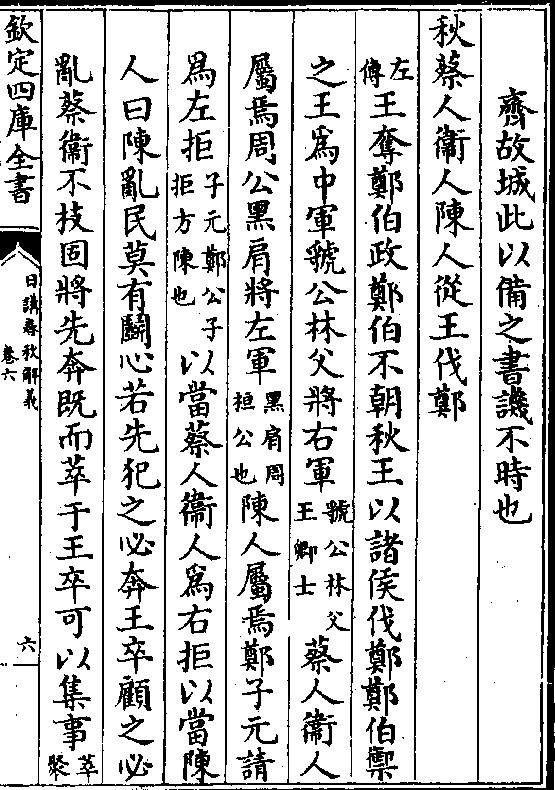 齊故城此以備之書譏不時也
秋蔡人衞人陳人從王伐鄭
左傳王奪鄭伯政鄭伯不朝秋王以諸侯伐鄭鄭伯禦
之王爲中軍虢公林父將右軍虢公林父王卿士蔡人衞人
屬焉周公黑肩將左軍黑肩周桓公也陳人屬焉鄭子元請
爲左拒子元鄭公子拒方陳也以當蔡人衞人爲右拒以當陳
人曰陳亂民莫有鬭心若先犯之必奔王卒顧之必
亂蔡衞不枝固將先奔既而萃于王卒可以集事萃聚
欽定四庫全書
日講春秋解義
卷六
六